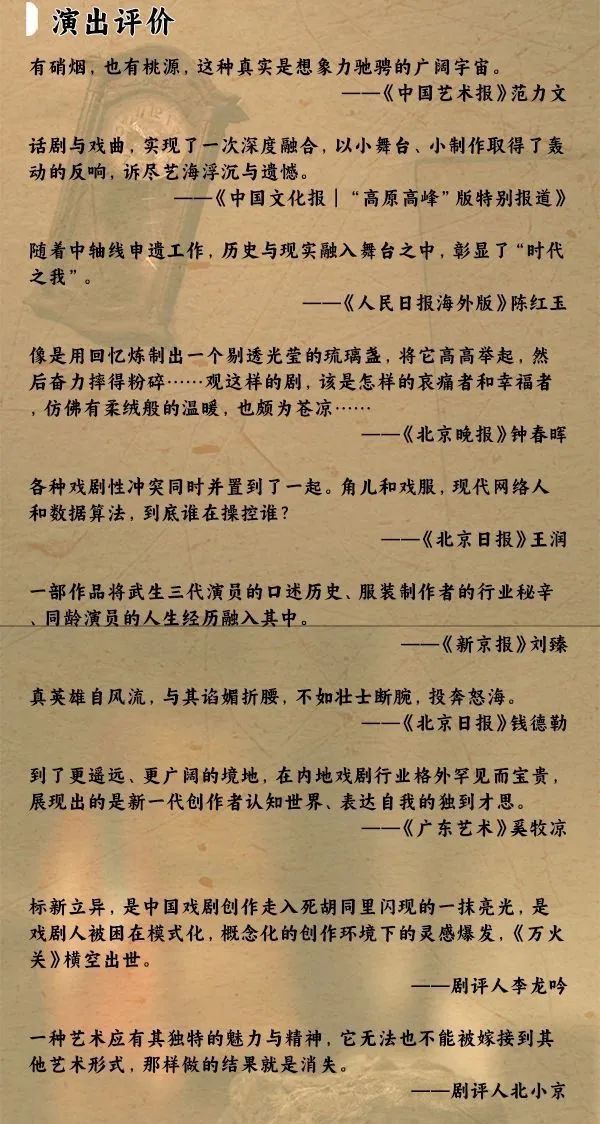 演出评价
有硝烟,也有桃源,这种真实是想象力驰骋的广阔宇宙。
——《中国艺术报》范力文
话剧与戏曲,实现了一次深度融合,以小舞台、小制作取得了轰
动的反响,诉尽艺海浮沉与遗憾。
——《中国文化报｜“高原高峰”版特别报道》
随着中轴线申遗工作,历史与现实融入舞台之中,彰显了“时代
之我”。
——《人民日报海外版》陈红玉
像是用回忆炼制出一个剔透光莹的琉璃盏,将它高高举起,然
后奋力摔得粉碎……观这样的剧,该是怎样的哀痛者和幸福者
,仿佛有柔绒般的温暖,也颇为苍凉……
——《北京晚报》钟春晖
各种戏剧性冲突同时并置到了一起。角儿和戏服,现代网络人
和数据算法,到底谁在操控谁?
——《北京日报》王润
一部作品将武生三代演员的口述历史、服装制作者的行业秘辛
、同龄演员的人生经历融入其中。
——《新京报》刘臻
真英雄自风流,与其谄媚折腰,不如壮士断腕,投奔怒海。
——《北京日报》钱德勒
到了更遥远、更广阔的境地,在内地戏剧行业格外罕见而宝贵,
展现出的是新一代创作者认知世界、表达自我的独到才思。
——《广东艺术》奚牧凉
标新立异,是中国戏剧创作走入死胡同里闪现的一抹亮光,是
戏剧人被困在模式化,概念化的创作环境下的灵感爆发,《万火
关》横空出世。
——剧评人李龙吟
一种艺术应有其独特的魅力与精神,它无法也不能被嫁接到其
他艺术形式,那样做的结果就是消失。
——剧评人北小京